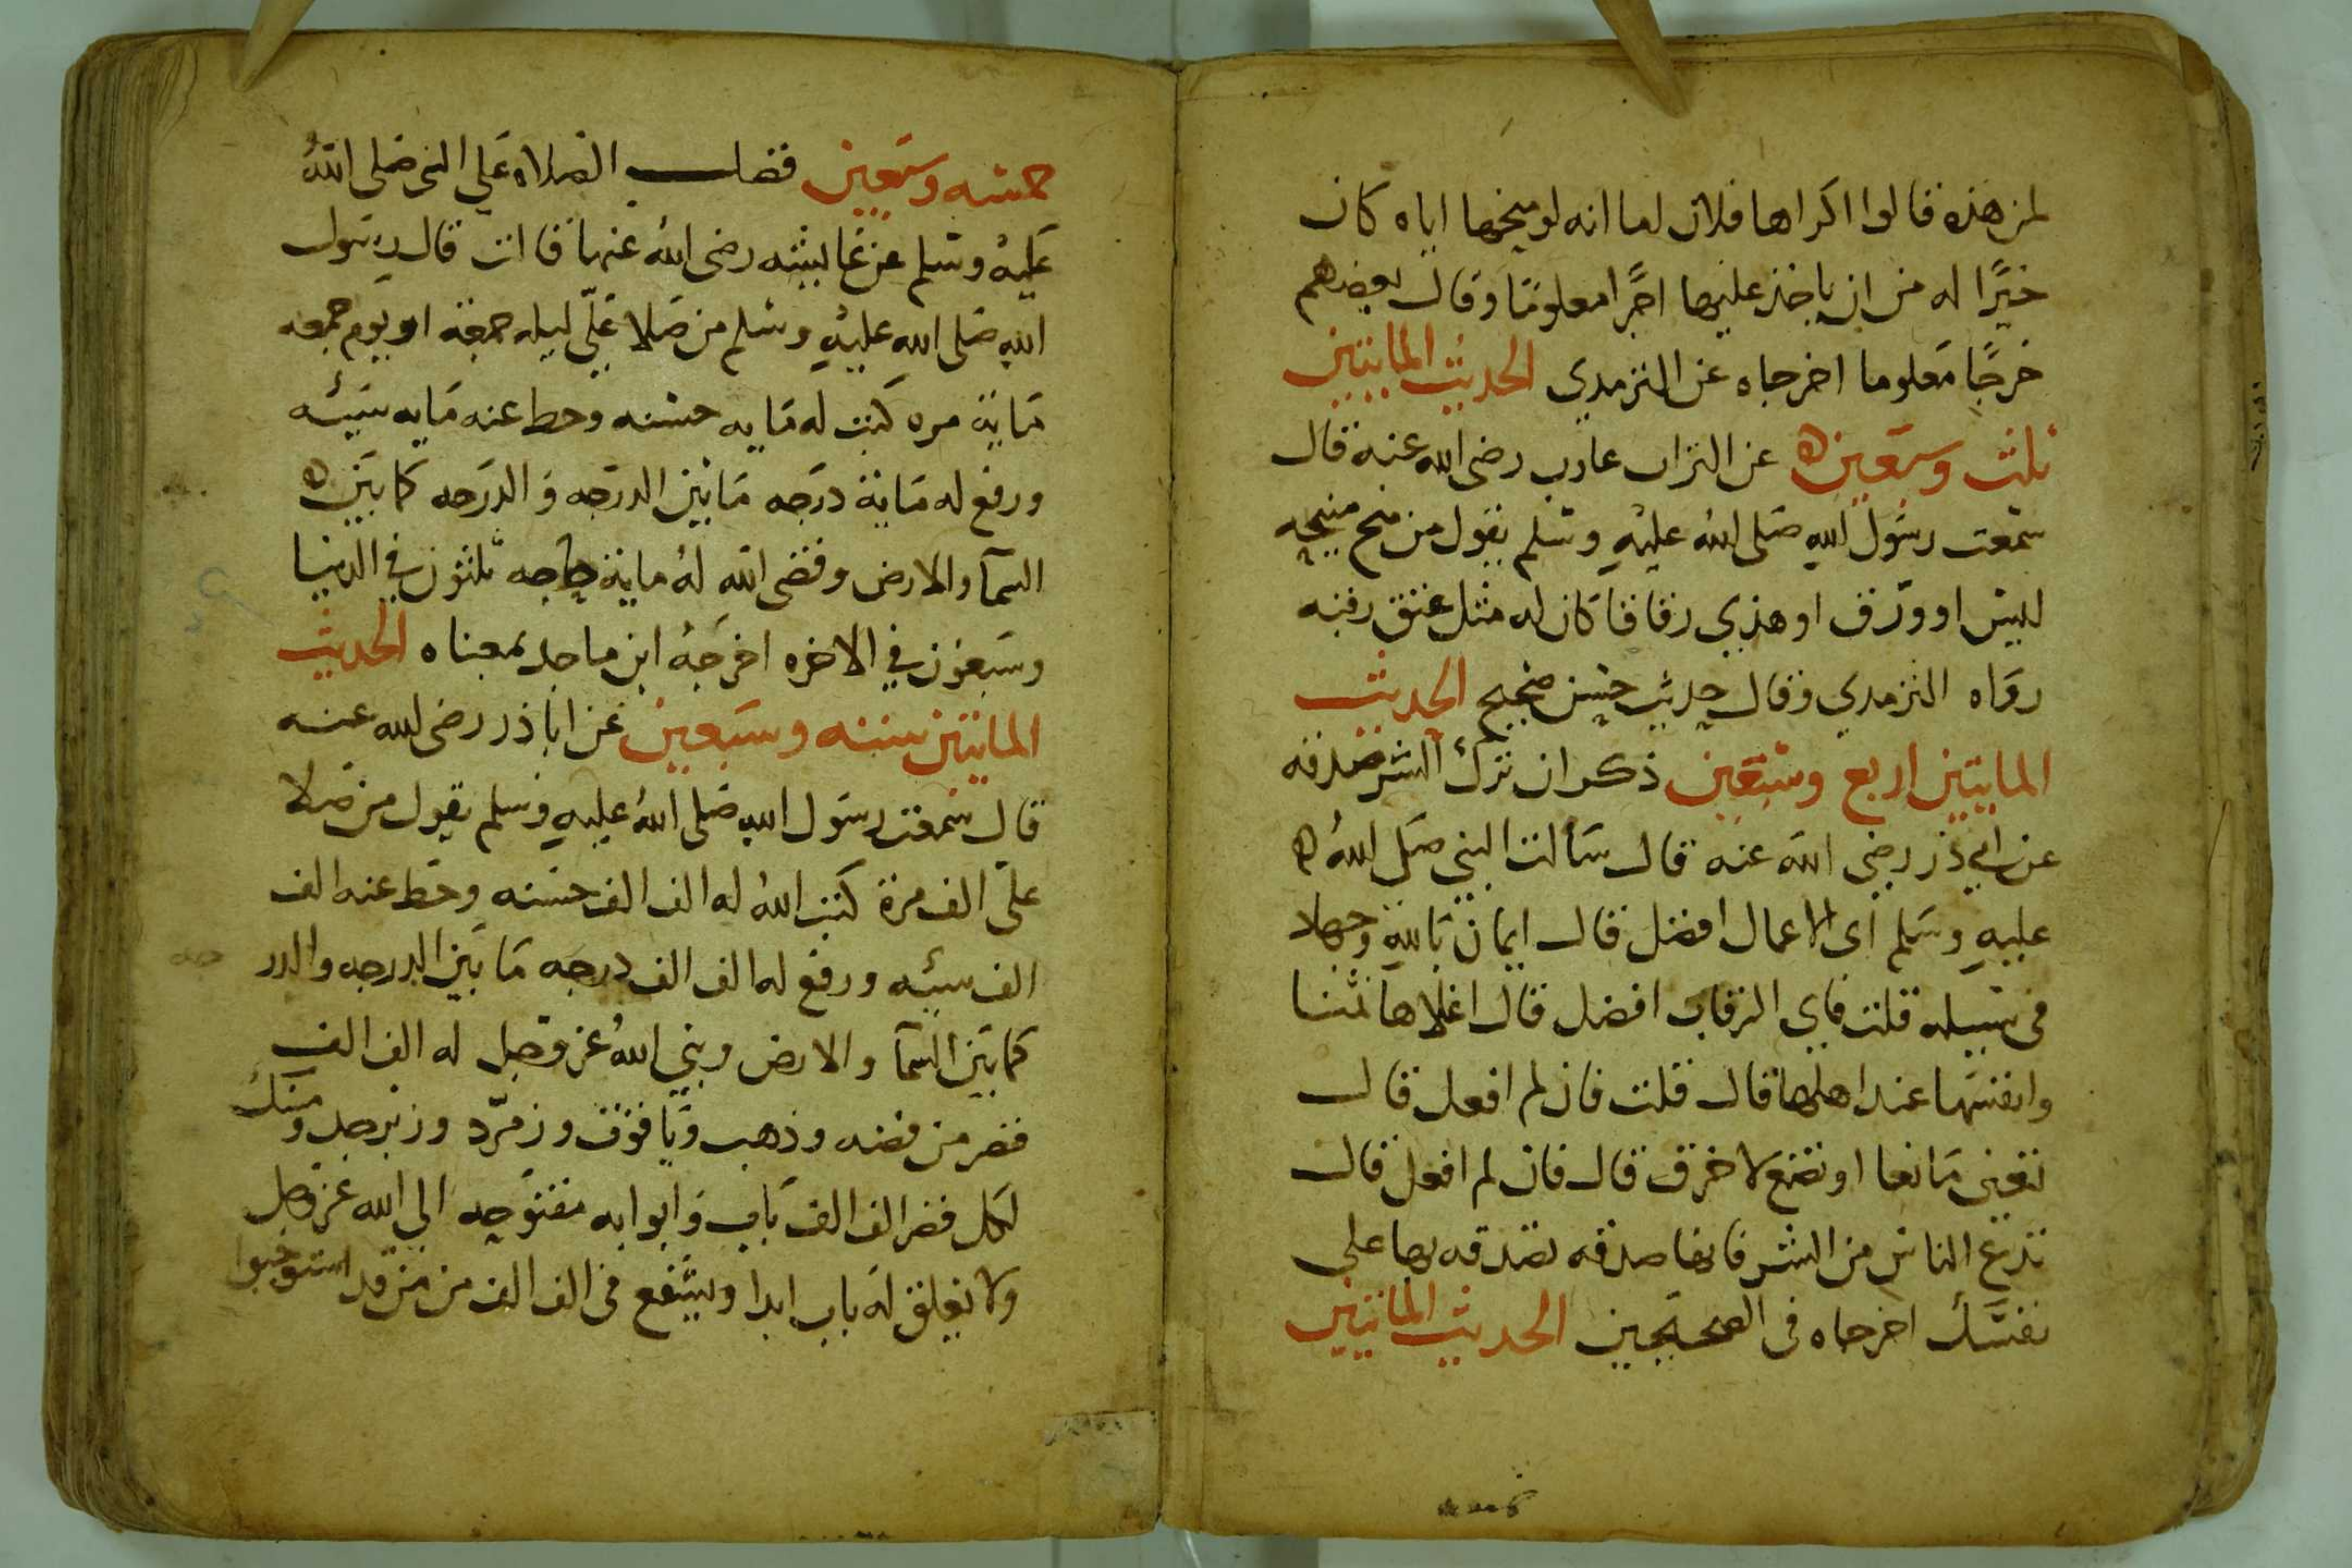 لمن هذه قالوا اكراها فلان اما انه لو منحها اياه كان
خيرًا له من ان ياخذ عليها اجرًا معلومًا وقال بعضهم
خرجًا معلوما اخرجاه عن الترمدي الحديث المايتين
ثلث وسبعين ه عن البراب عارب رضى الله عنه قال
سمعت رسول الله صلى الله عليه وسلم يقول من منح منيحه
لبيس او ورق او هذي زقاقا كان له مثل عتق رقبه
رواه الترمدي وقال حديث حسن صحيح الحديث
المايتين اربع وسبعين ذكر ان ترك الشر صدقه
عن ابي ذر رضي الله عنه قال سألت النبي صلى الله ه
عليه وسلم اى الاعمال افضل قال ايمان بالله وجهاد
فى سبيله قلت فاي الرقاب افضل قال اغلاها ثمنا
وانفسها عند اهلها قال قلت فان لم افعل قال
تعين صانعا او تصنع لاخرق قال فان لم افعل قال
تدع الناس من الشر فانها صدقه تصدقه بها على
نفسك اخرجاه فى الصحيحين الحديث المائتين
خمسه وسبعين فضل الصلاه على النبي صلى الله
عليه وسلم عن عايشه رضى الله عنها قالت قال رسول
الله صلى الله عليه وسلم من صلا عليّ ليله جمعة او يوم جمعه
ماية مره كتبت له مايه حسنه وحط عنه مايه سيئه
ورفع له ماية درجه ما بين الدرجه والدرجه كما بين ه
السمآ والارض وقضى الله له ماية حاجه ثلثون في الدنيا
وسبعون في الاخره اخرجه ابن ماجد بمعناه الحديث
المايتين سته وسبعين عن ابا ذر رضى الله عنه
قال سمعت رسول الله صلى الله عليه وسلم يقول من صلا
علىّ الف مرة كتب الله له الف الف حسنه وحط عنه الف
الف سيئه ورفع له الف الف درجه ما بين الدرجه والدر
جه
كما بين السمآ والارض وبني الله عز وجل له الف الف
قصر من فضه وذهب وياقوت وزمرّد وزبرجد ومسك
لكل قصر الف الف باب وابوابه مفتوحه الى الله عز وجل
ولا يغلق له باب ابدا ويشفع فى الف الف من من قد استوجبوا